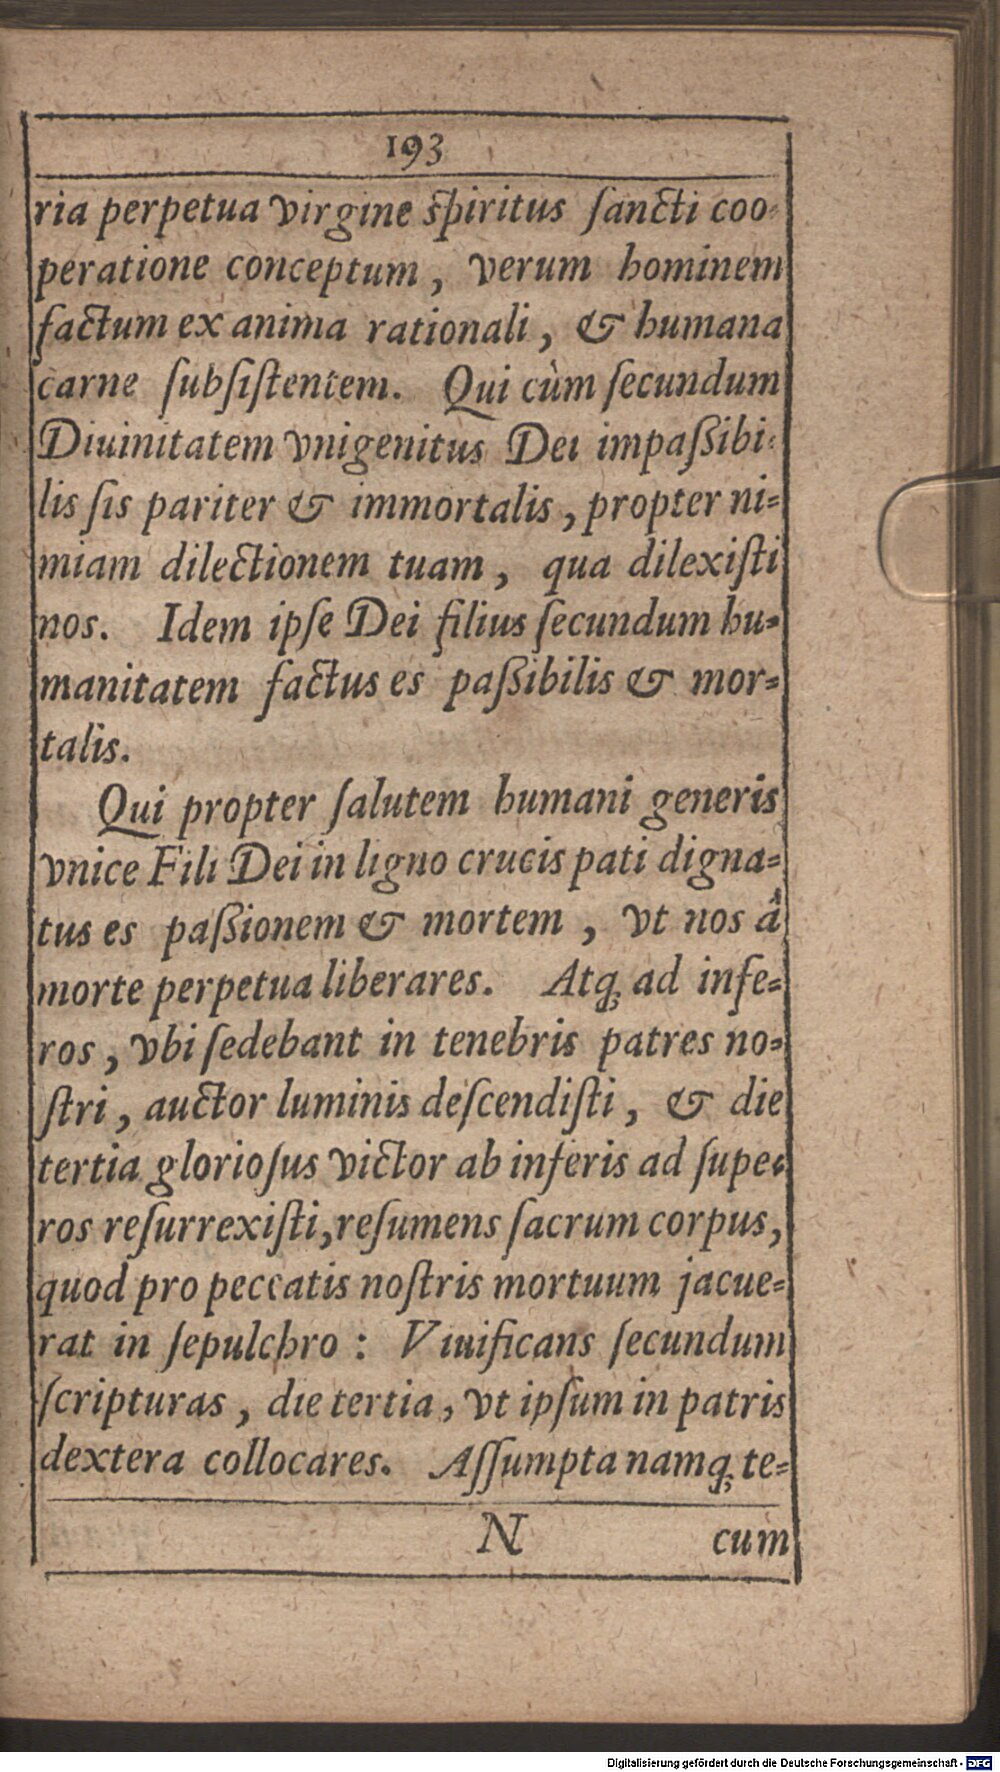 193
ria perpetua virgine spiritus ſancti coo-
peratione conceptum, verum hominem
factum ex anima rationali, & humana
carne ſubſiſtentem. Qui cùm ſecundum
Diuinitatem vnigenitus Dei impaßibi-
lis ſis pariter & immortalis, propter ni-
miam dilectionem tuam, qua dilexiſti
nos. Idem ipſe Dei filius ſecundum hu-
manitatem factus es paßibilis & mor-
talis.
Qui propter ſalutem humani generis
vnice Fili Dei in ligno crucis pati digna-
tus es paßionem & mortem, vt nos â
morte perpetua liberares. Atq́; ad infe-
ros, vbi ſedebant in tenebris patres no-
ſtri, auctor luminis deſcendiſti, & die
tertia glorioſus victor ab inferis ad ſupe-
ros reſurrexiſti, reſumens ſacrum corpus,
quod pro peccatis noſtris mortuum jacue-
rat in ſepulchro: Viuificans ſecundum
ſcripturas, die tertia, vt ipſum in patris
dextera collocares. Aſſumpta namq; te-
N cum
Digitalisierung gefördert durch die Deutsche Forschungsgemeinschaft - DFG